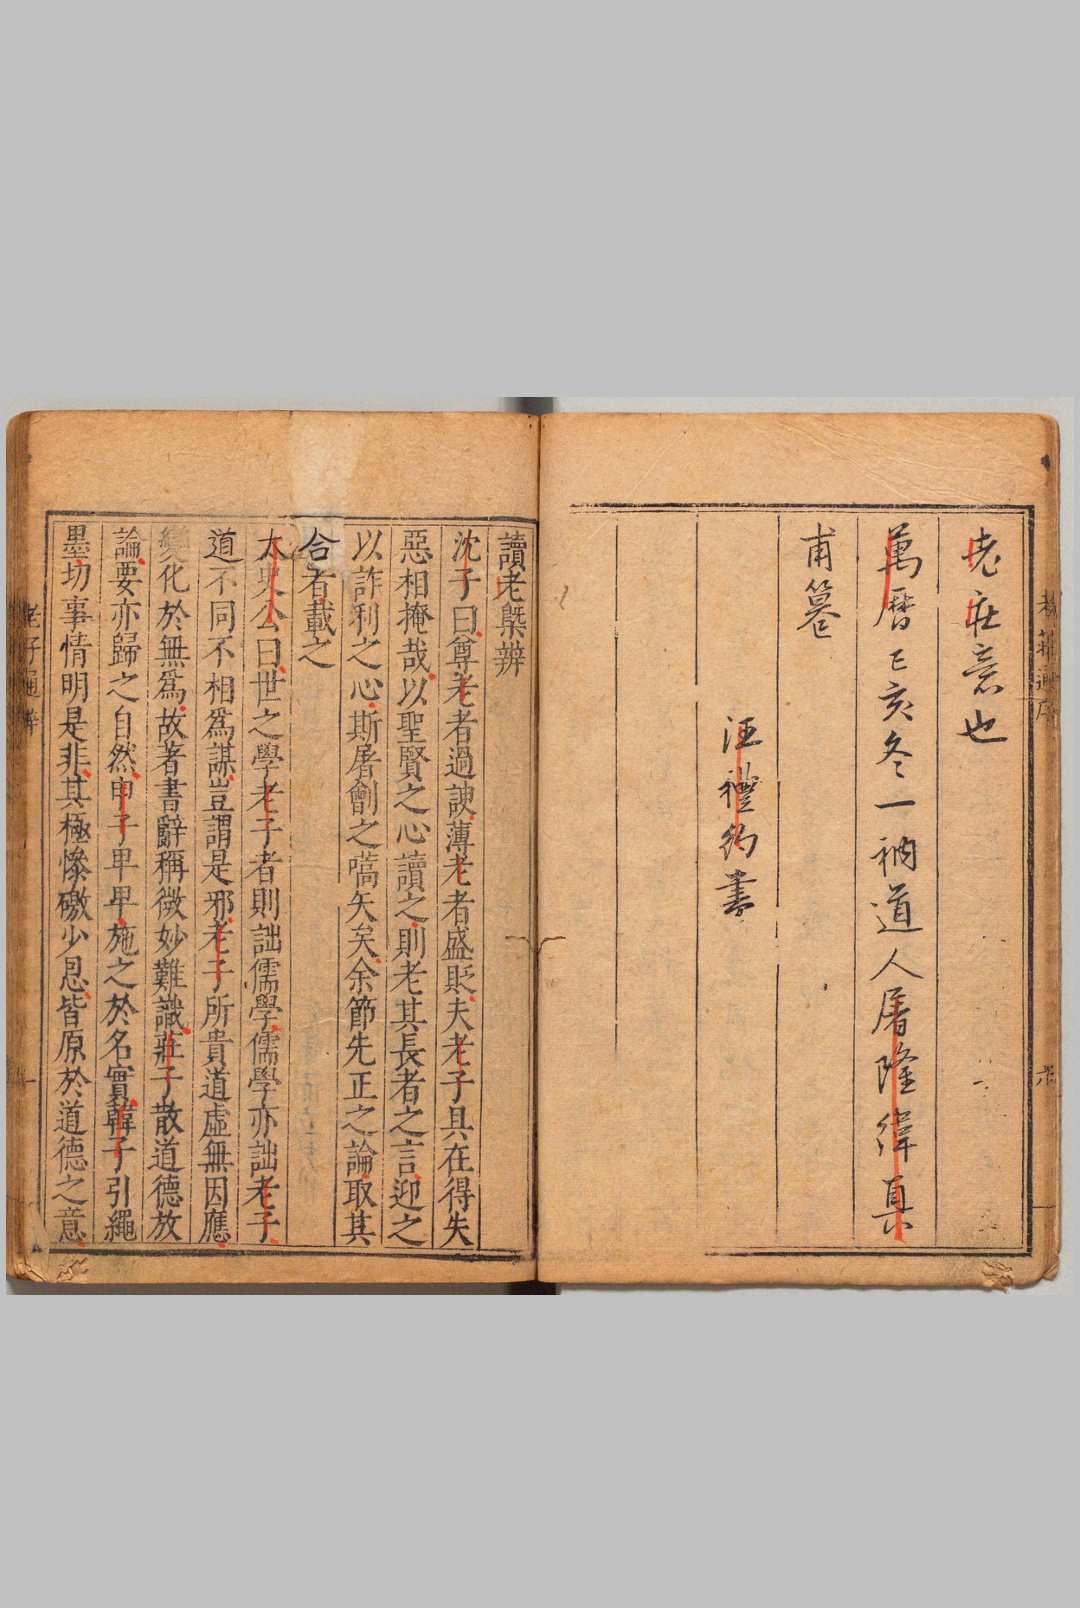 老莊意也
萬曆己亥冬一衲道人屠隆緯真
甫篹
汪禮約書
讀老槩辨
沈子曰尊老者過諛薄老者盛貶夫老子具在得失
惡相掩哉以聖賢之心讀之則老其長者之言迎之
以詐利之心斯屠劊之嚆矢矣余節先正之論取其
合者載之
太史公曰世之學老子者則詘儒學儒學亦詘老子
道不同不相爲謀豈謂是邪老子所貴道虛無因應
變化於無爲故著書辭稱微妙難識莊子散道德放
論要亦歸之自然申子卑卑施之於名實韓子引繩
墨切事情明是非其極慘礉少恩皆原於道德之意